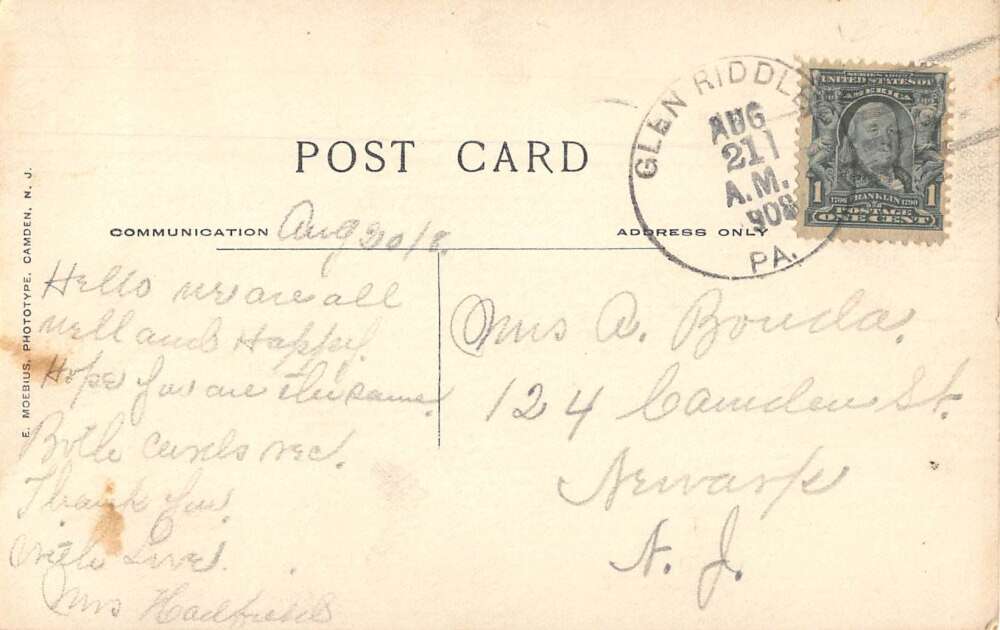 POST CARD
COMMUNICATION
ADDRESS ONLY
Aug 20/8.
Hello we are all
well and Happy.
Hope you are the same.
Both cards rec.
Thank You.
With Love.
Mrs
Mrs A. Bouda.
124 Camden St.
Newark
N. J.
GLEN RIDDLE
AUG
21
A.M.
1908
PA.
SERIES 1902
UNITED STATES OF
AMERICA
1
1
1706 FRANKLIN 1790
POSTAGE
ONE CENT
E. MOEBIUS, PHOTOTYPE, CAMDEN, N. J.